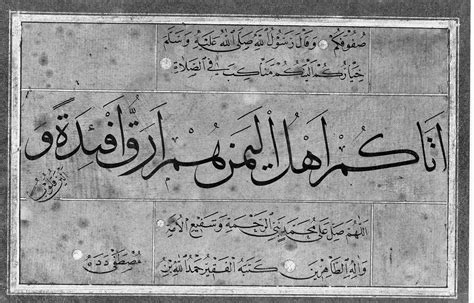 صفوفكم وقال رسول الله صلى الله عليه وسلم
خياركم الينكم مناكب في الصلاة
اتاكم اهل اليمن هم ارق افئدة و
الين قلوبا
اللهم صل على محمد نبي الرحمة وشفيع الامة
واله الطاهرين كتبه الفقير حمد الله بن
مصطفى دده